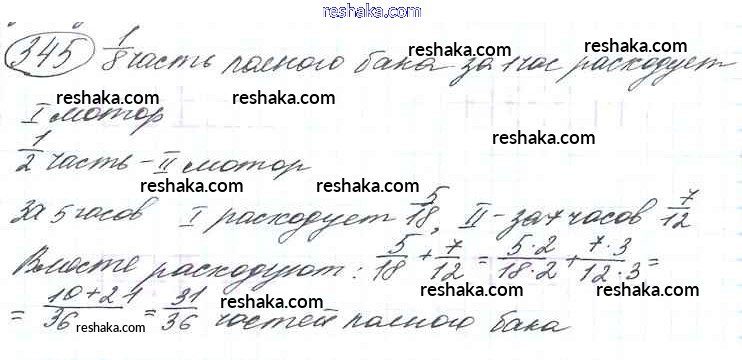 reshaka.com
345 1/8 часть полного бака за 1 час расходует
reshaka.com reshaka.com
reshaka.com reshaka.com
I мотор
1/2 часть - II мотор
reshaka.com reshaka.com
За 5 часов I расходует 5/18, II - за 7 часов 7/12
reshaka.com reshaka.com
Вместе расходуют: 5/18 + 7/12 = 5·2/18·2 + 7·3/12·3 =
reshaka.com reshaka.com
= 10+21/36 = 31/36 частей полного бака
reshaka.com reshaka.com